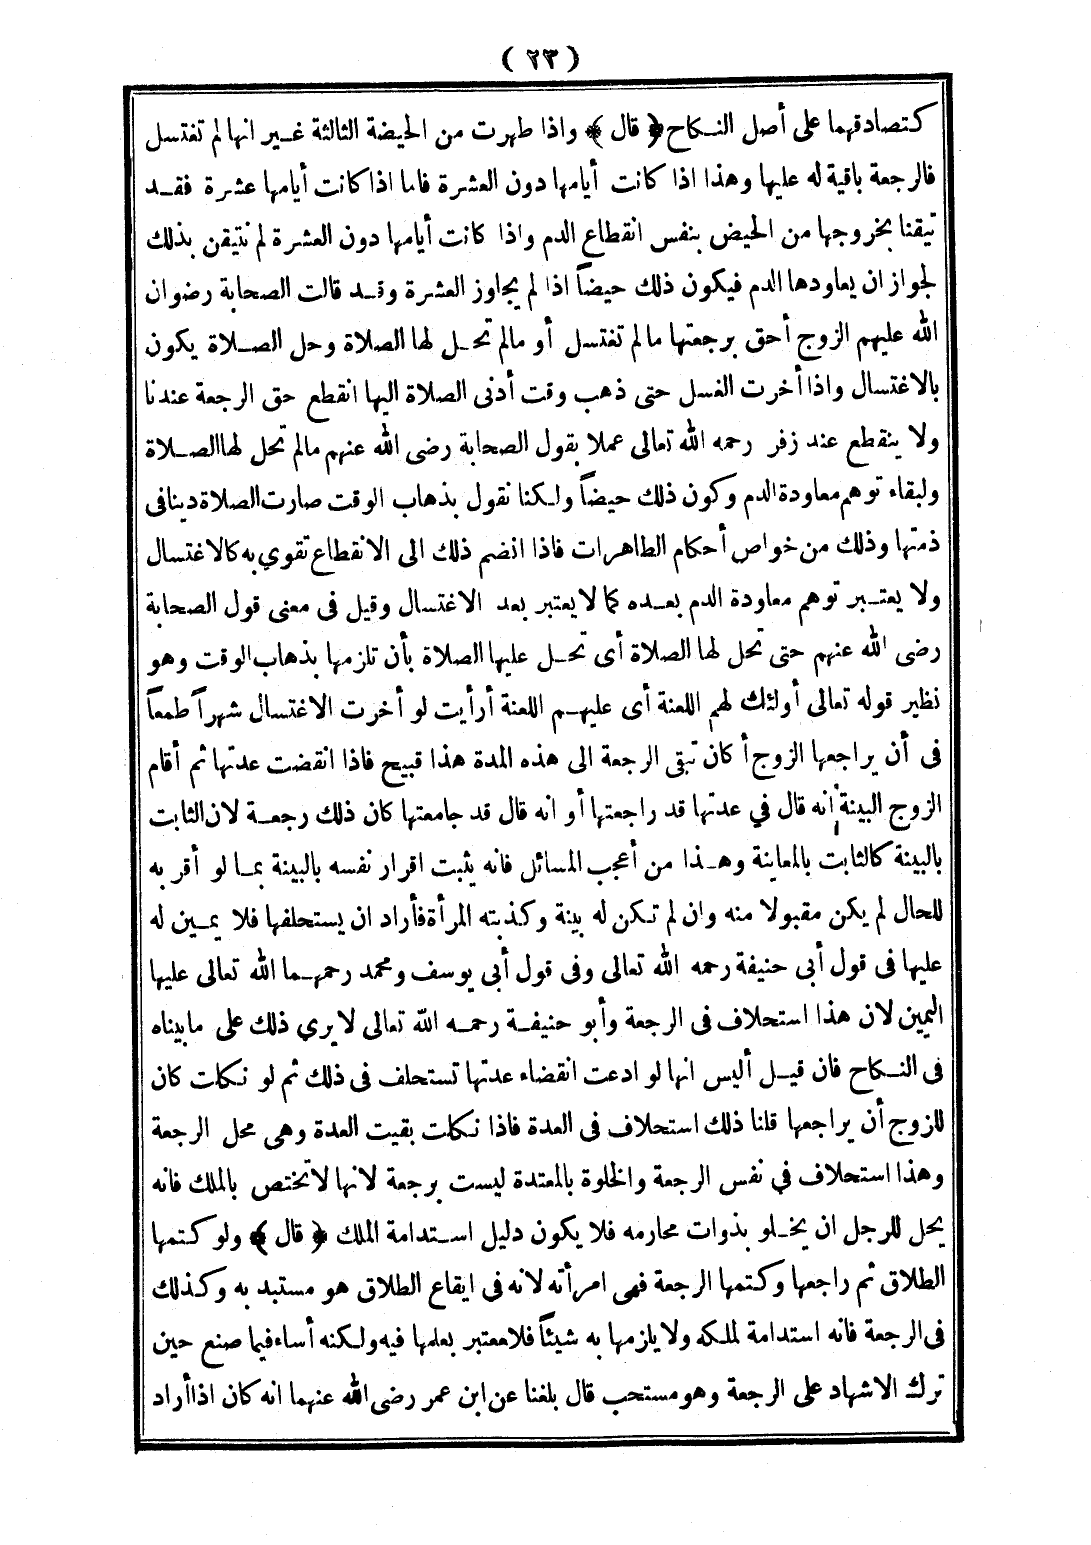 ( ٢٣ )
كتصادقهما على أصل النكاح ﴿ قال ﴾ واذا طهرت من الحيضة الثالثة غير انها لم تغتسل
فالرجعة باقية له عليها وهذا اذا كانت أيامها دون العشرة فاما اذا كانت أيامها عشرة فقد
تيقنا بخروجها من الحيض بنفس انقطاع الدم واذا كانت أيامها دون العشرة لم نتيقن بذلك
لجواز ان يعاودها الدم فيكون ذلك حيضاً اذا لم يجاوز العشرة وقد قالت الصحابة رضوان
الله عليهم الزوج أحق برجعتها مالم تغتسل أو مالم تحل لها الصلاة وحل الصلاة يكون
بالاغتسال واذا أخرت الغسل حتى ذهب وقت أدنى الصلاة اليها انقطع حق الرجعة عندنا
ولا ينقطع عند زفر رحمه الله تعالى عملا بقول الصحابة رضى الله عنهم مالم تحل لها الصلاة
ولبقاء توهم معاودة الدم وكون ذلك حيضاً ولكنا نقول بذهاب الوقت صارت الصلاة دينا فى
ذمتها وذلك من خواص أحكام الطاهرات فاذا انضم ذلك الى الانقطاع تقوي به كالاغتسال
ولا يعتبر توهم معاودة الدم بعده كما لا يعتبر بعد الاغتسال وقيل فى معنى قول الصحابة
رضى الله عنهم حتى تحل لها الصلاة أى تحل عليها الصلاة بأن تلزمها بذهاب الوقت وهو
نظير قوله تعالى أولئك لهم اللعنة أى عليهم اللعنة أرأيت لو أخرت الاغتسال شهراً طمعاً
فى أن يراجعها الزوج أكان تبقى الرجعة الى هذه المدة هذا قبيح فاذا انقضت عدتها ثم أقام
الزوج البينة انه قال في عدتها قد راجعتها أو انه قال قد جامعتها كان ذلك رجعة لان الثابت
بالبينة كالثابت بالمعاينة وهذا من أعجب المسائل فانه يثبت اقرار نفسه بالبينة بما لو أقر به
للحال لم يكن مقبولا منه وان لم تكن له بينة وكذبته المرأة فأراد ان يستحلفها فلا يمين له
عليها فى قول أبى حنيفة رحمه الله تعالى وفى قول أبى يوسف ومحمد رحمهما الله تعالى عليها
اليمين لان هذا استحلاف فى الرجعة وأبو حنيفة رحمه الله تعالى لا يري ذلك على ما بيناه
فى النكاح فان قيل أليس انها لو ادعت انقضاء عدتها تستحلف فى ذلك ثم لو نكلت كان
للزوج أن يراجعها قلنا ذلك استحلاف فى العدة فاذا نكلت بقيت العدة وهى محل الرجعة
وهذا استحلاف في نفس الرجعة والخلوة بالمعتدة ليست برجعة لانها لا تختص بالملك فانه
يحل للرجل ان يخلو بذوات محارمه فلا يكون دليل استدامة الملك ﴿ قال ﴾ ولو كتمها
الطلاق ثم راجعها وكتمها الرجعة فهى امرأته لانه فى ايقاع الطلاق هو مستبد به وكذلك
فى الرجعة فانه استدامة لملكه ولا يلزمها به شيئاً فلا معتبر بعلمها فيه ولكنه أساء فيما صنع حين
ترك الاشهاد على الرجعة وهو مستحب قال بلغنا عن ابن عمر رضى الله عنهما انه كان اذا أراد